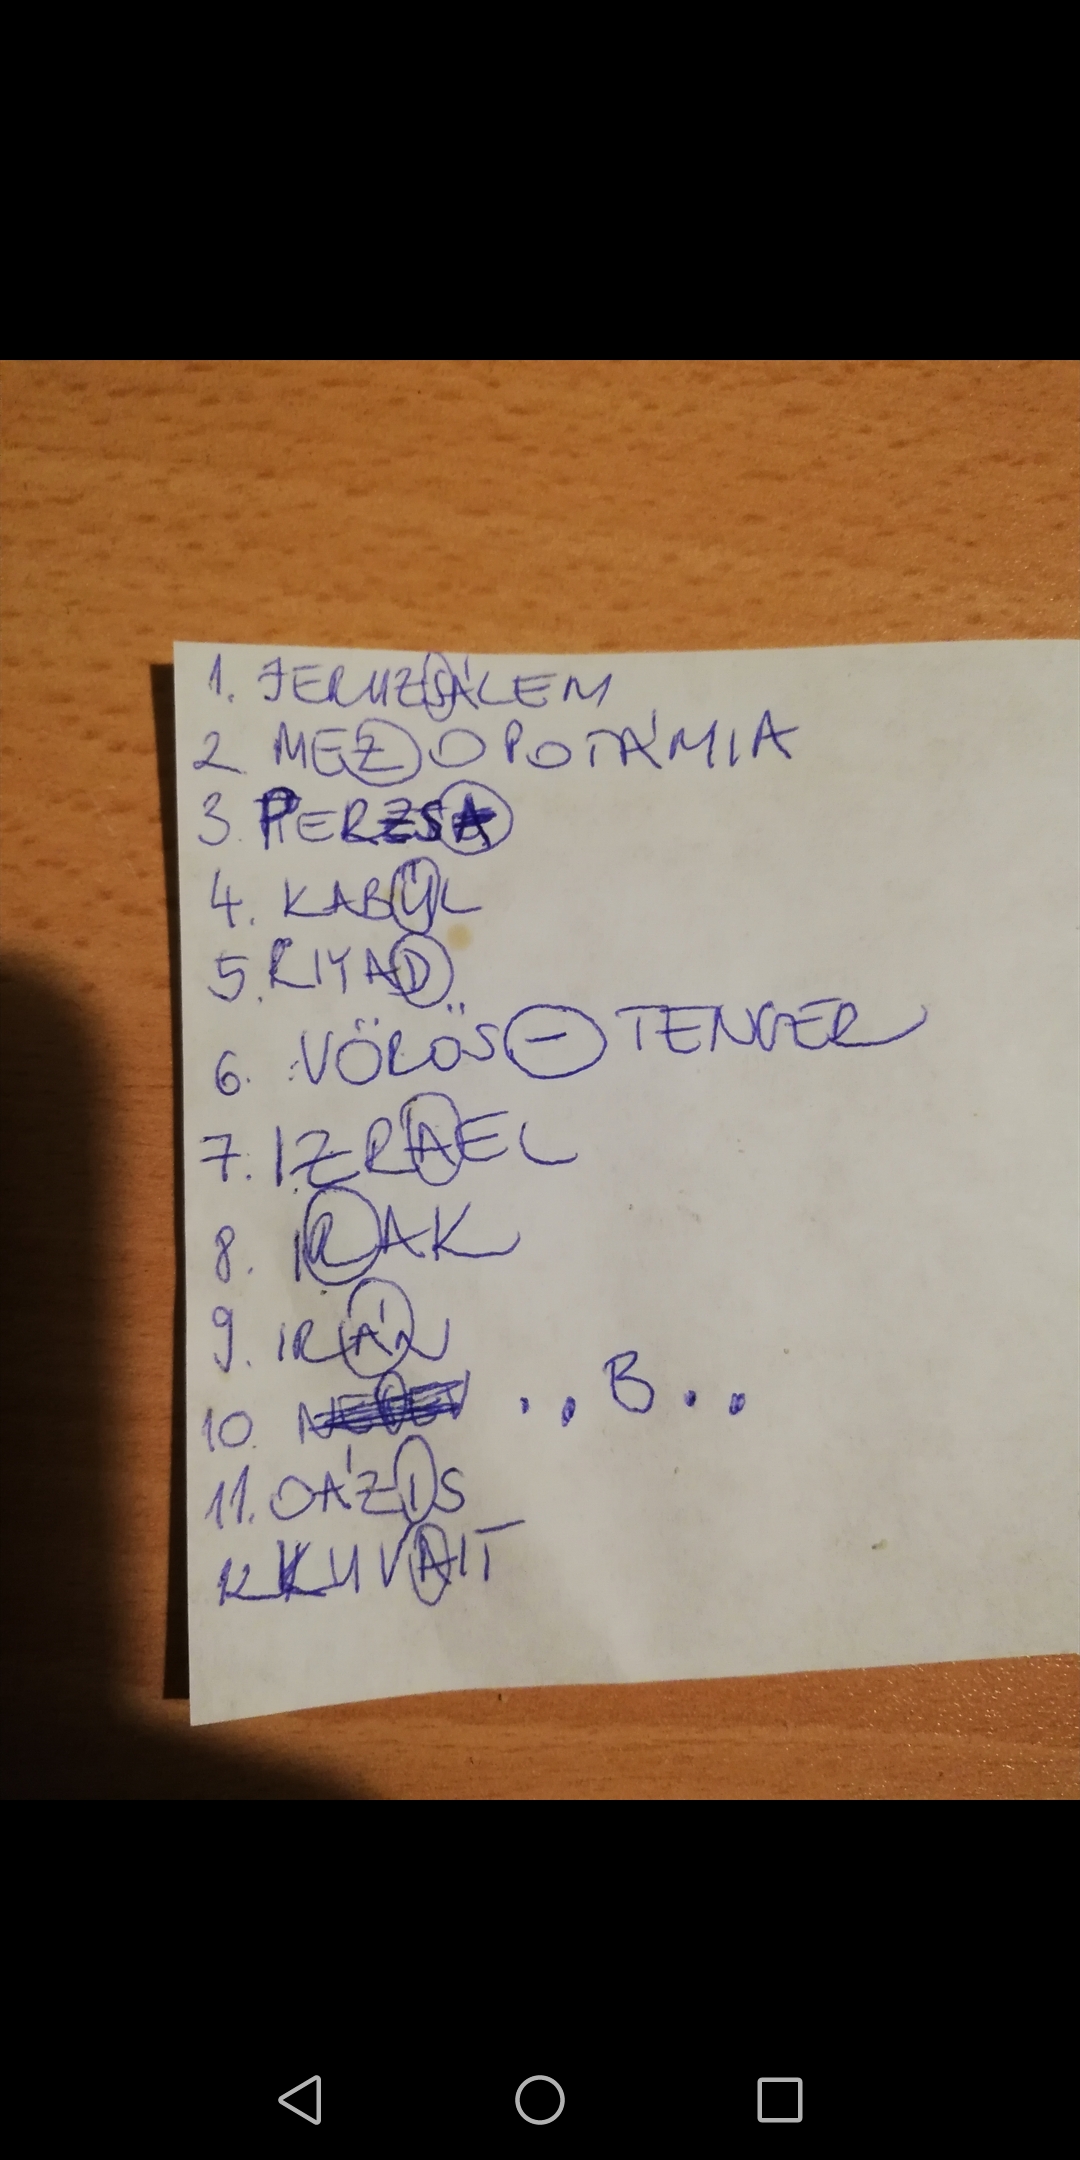 1. JERUZSÁLEM
2 MEZOPOTÁMIA
3. PERZSA
4. KABUL
5. RIYAD
6. VÖRÖS-TENGER
7. IZRAEL
8. IRAK
9. IRÁN
10. . . B . .
11. OÁZIS
12 KUVAIT